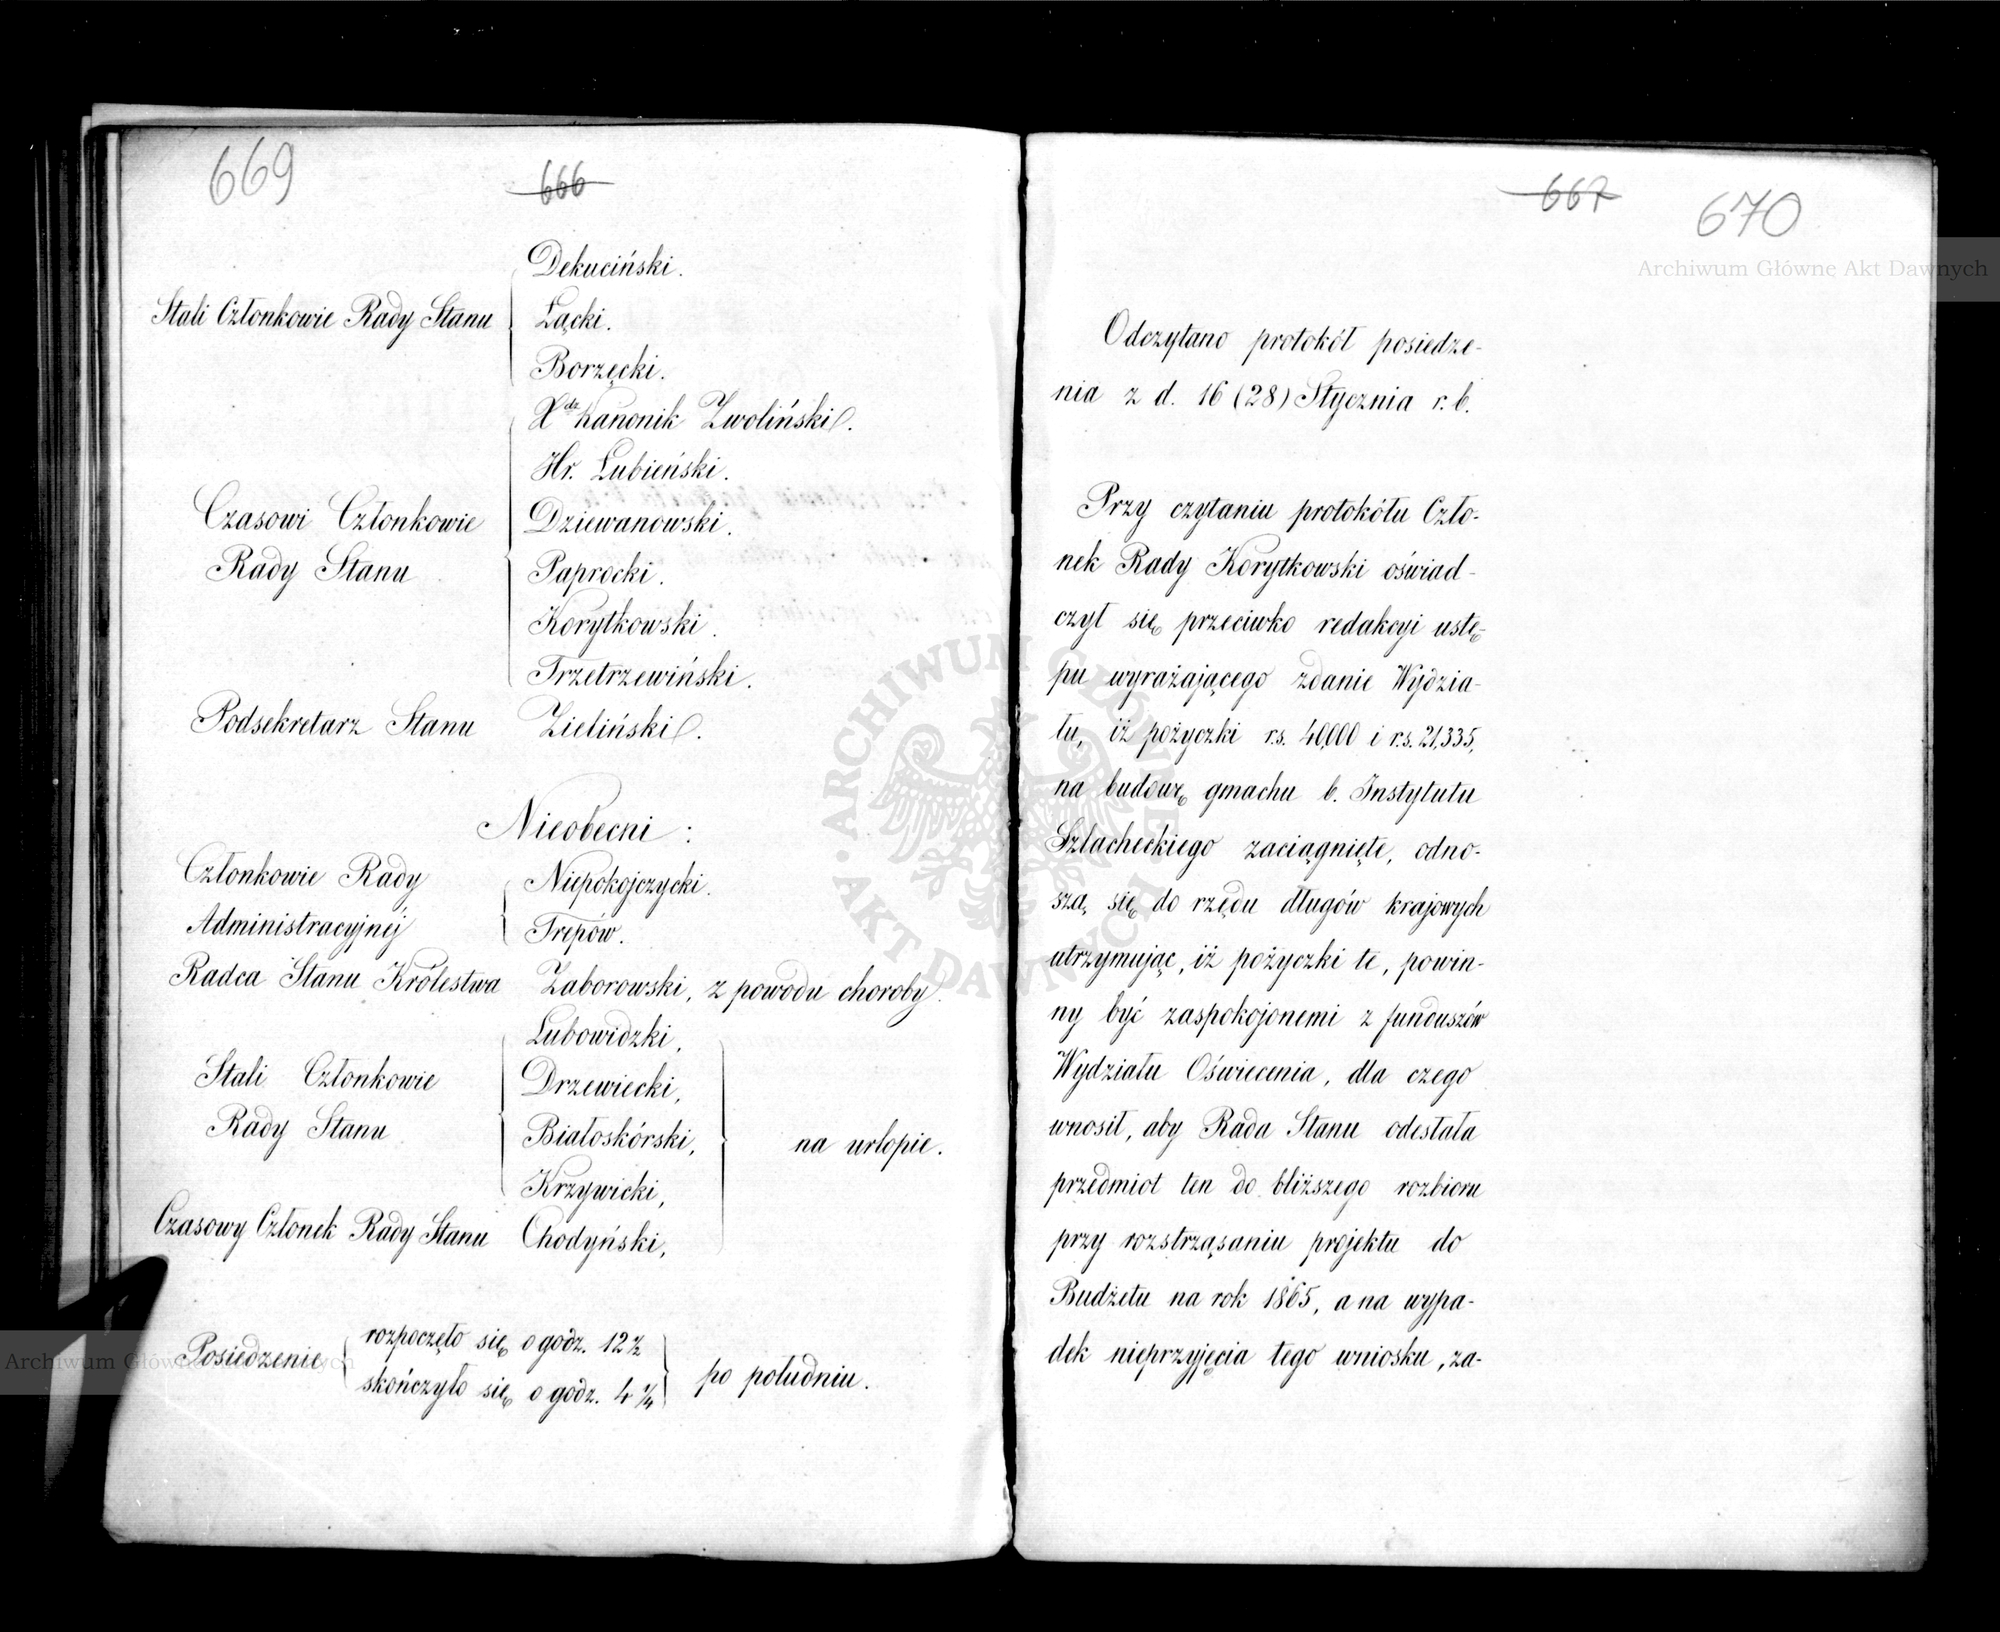 669
666
Dekuciński.
Stali Członkowie Rady Stanu Łącki.
Borzęcki.
Xdz Kanonik Zwoliński.
Hr. Łubieński.
Czasowi Członkowie Dziewanowski.
Rady Stanu Paprocki.
Korytkowski.
Trzetrzewiński.
Podsekretarz Stanu Zieliński.
Nieobecni:
Członkowie Rady Niepokojczycki.
Administracyjnéj Trepów.
Radca Stanu Królestwa Zaborowski, z powodu choroby.
Lubowidzki,
Stali Członkowie Drzewiecki,
Rady Stanu Białoskórski, na urlopie.
Krzywicki,
Czasowy Członek Rady Stanu Chodyński,
Posiedzenie rozpoczęło się o godz. 12½
skończyło się o godz. 4¼ po południu.
667
670
Odczytano protokół posiedze-
nia z d. 16 (28) Stycznia r. b.
Przy czytaniu protokółu Czło-
nek Rady Korytkowski oświad-
czył się przeciwko redakcyi ustę-
pu wyrażającego zdanie Wydzia-
łu, iż pożyczki rs. 40,000 i rs. 21,335,
na budowę gmachu b. Instytutu
Szlacheckiego zaciągnięte, odno-
szą się do rzędu długów krajowych
utrzymując, iż pożyczki te, powin-
ny być zaspokojonemi z funduszów
Wydziału Oświecenia, dla czego
wnosił, aby Rada Stanu odesłała
przedmiot ten do bliższego rozbioru
przy rozstrząsaniu projektu do
Budżetu na rok 1865, a na wypa-
dek nieprzyjęcia tego wniosku, za-
Archiwum Główne Akt Dawnych
Archiwum Główne Akt Dawnych
ARCHIWUM GŁÓWNE AKT DAWNYCH